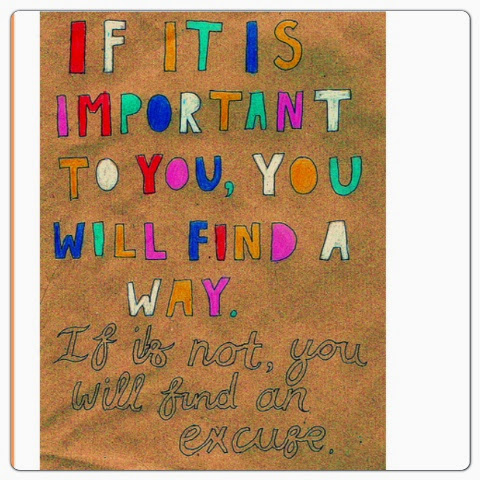 IF IT IS
IMPORTANT
TO YOU, YOU
WILL FIND A
WAY.
If it's not, you
will find an
excuse.